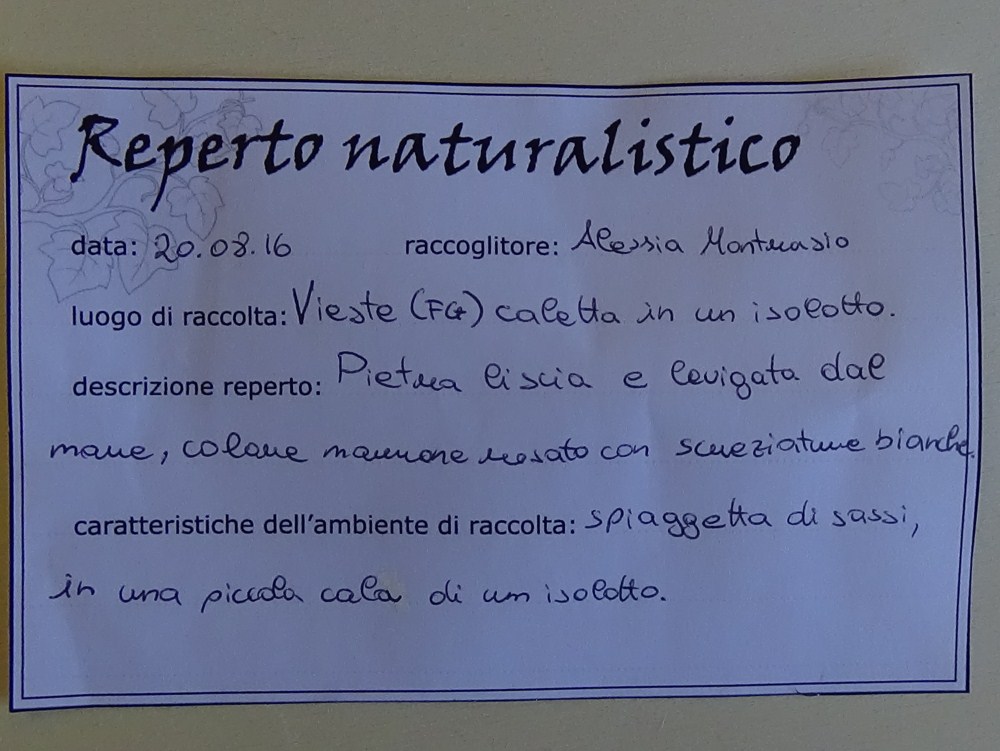 Reperto naturalistico
data: 20.08.16 raccoglitore: Alessia Montecasio
luogo di raccolta: Vieste (FG) caletta in un isolotto.
descrizione reperto: Pietra liscia e levigata dal
mare, colore marrone rosato con screziature bianche.
caratteristiche dell'ambiente di raccolta: spiaggetta di sassi,
in una piccola cala di un isolotto.